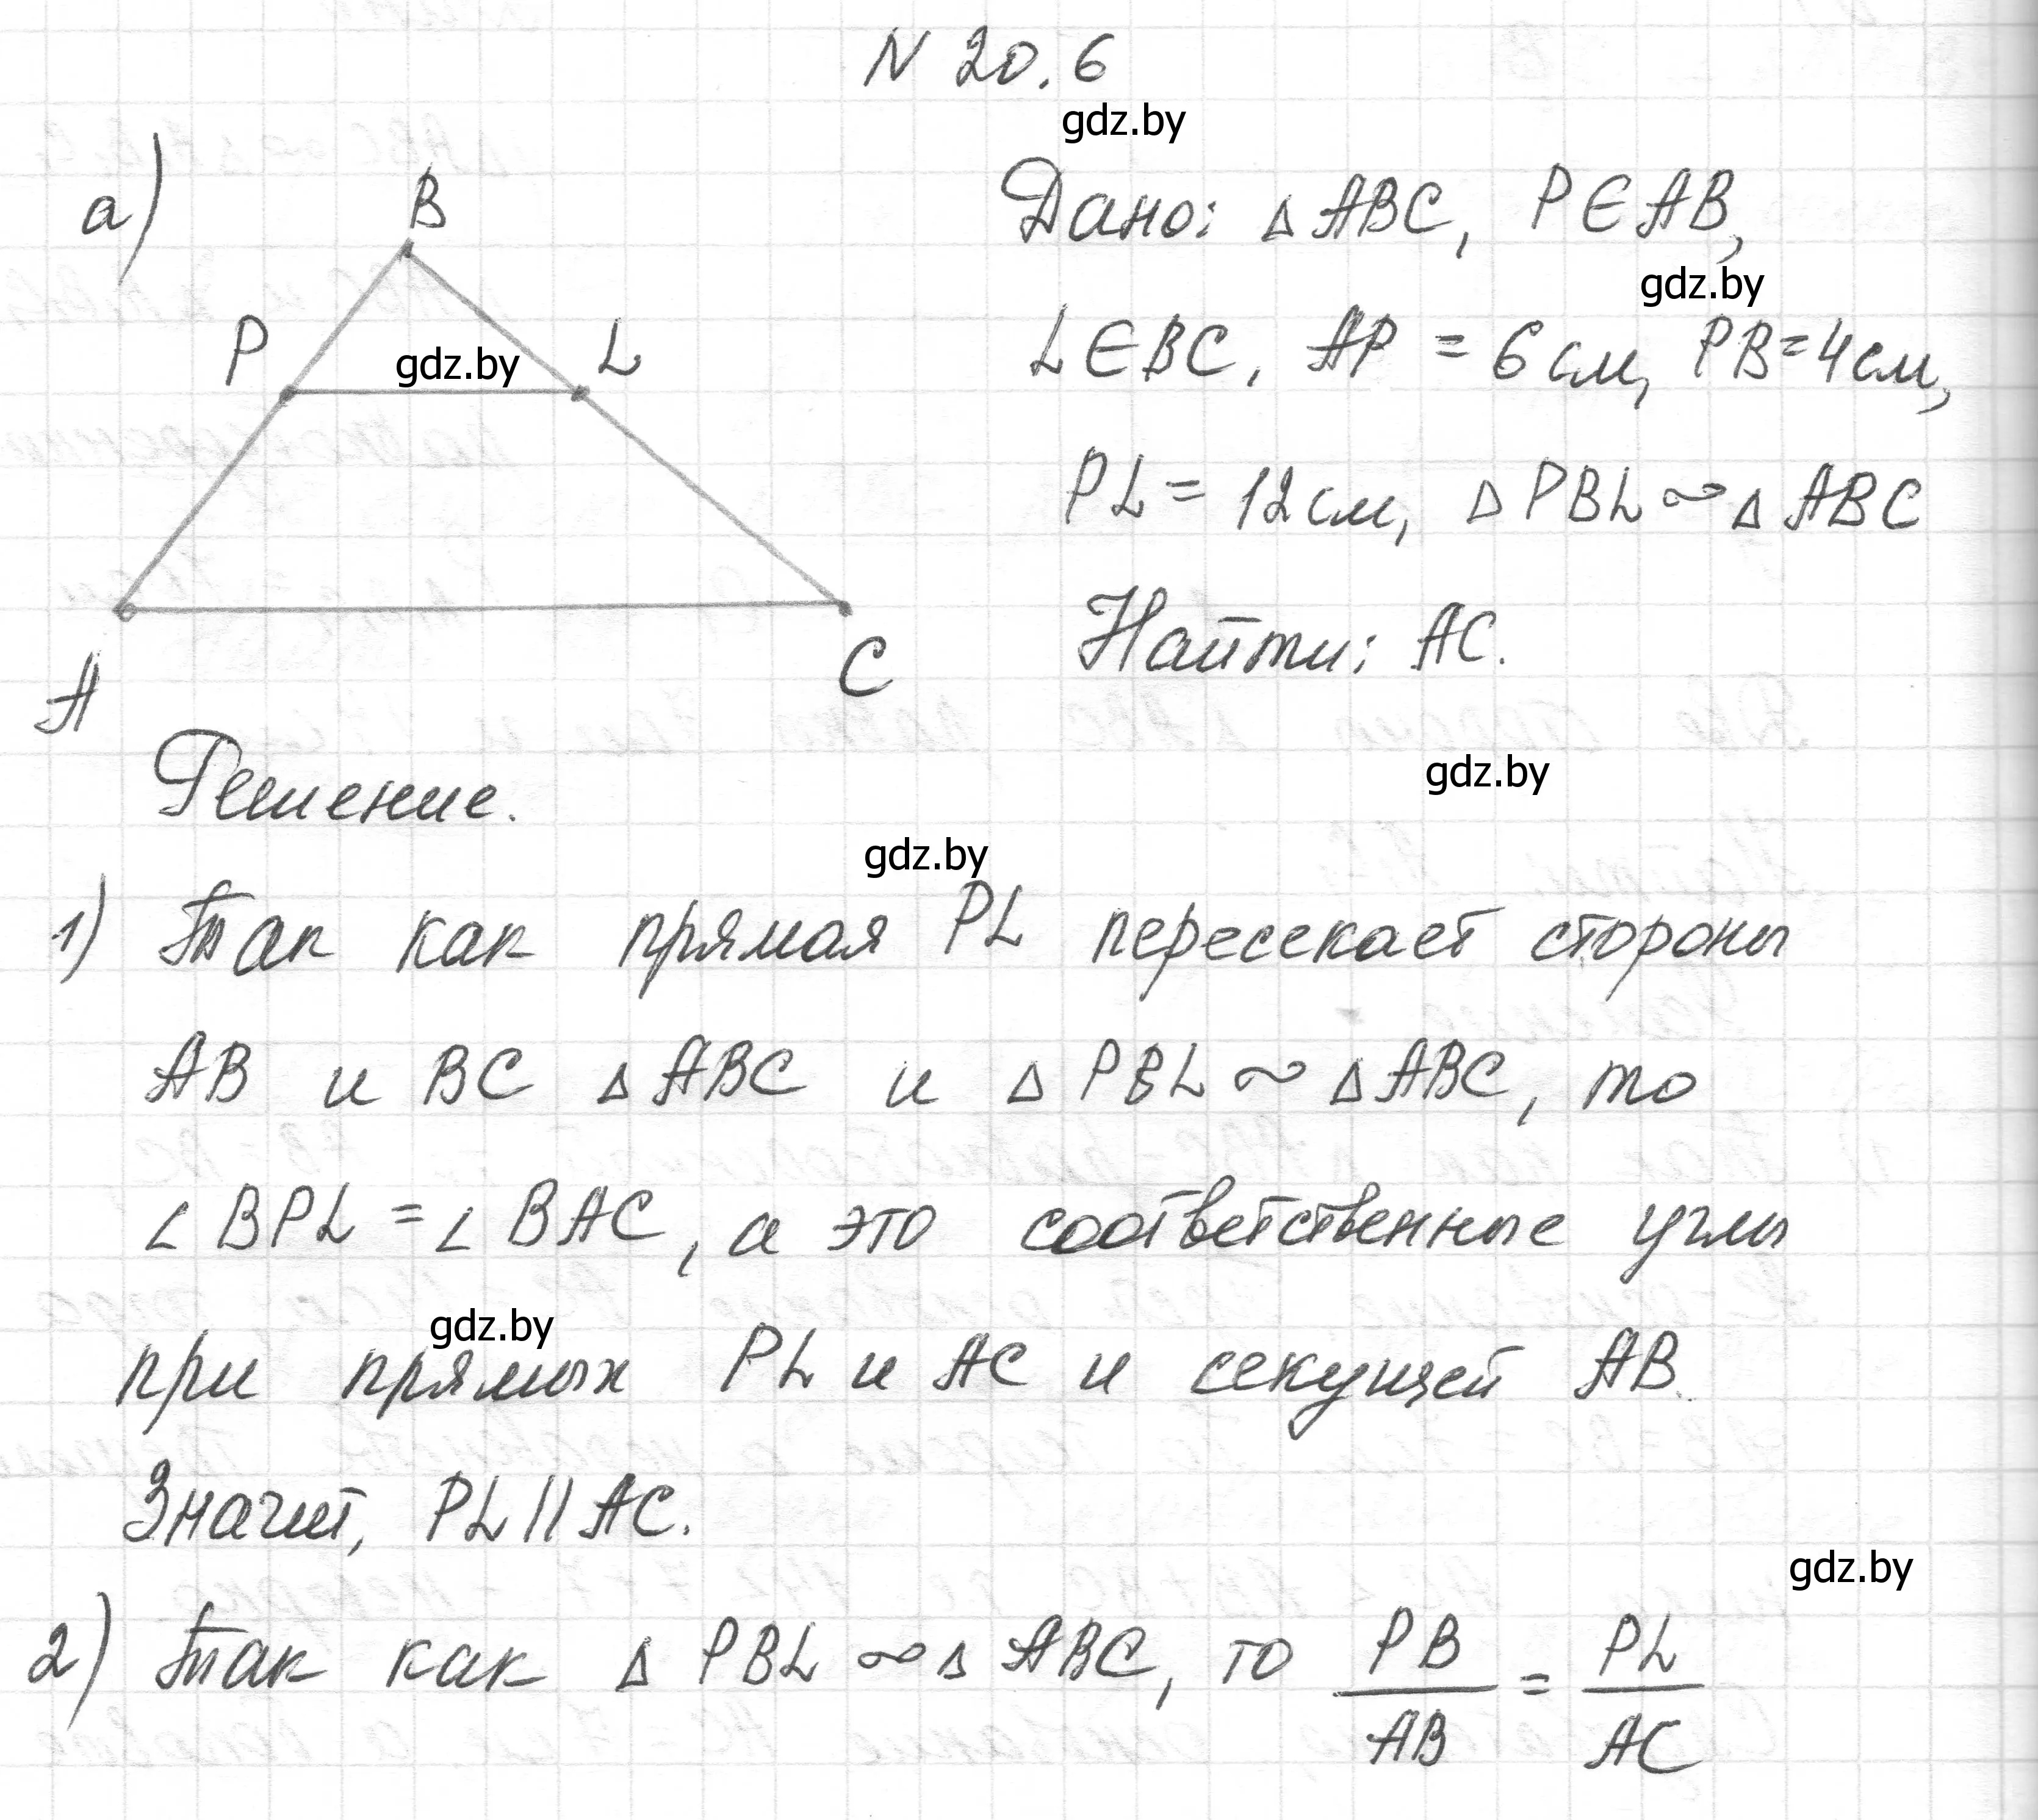 N 20.6
gdz.by
а)
B
P
gdz.by
L
A
C
Дано: △ABC, P∈AB,
gdz.by
L∈BC, AP = 6 см, PB=4см,
PL = 12см, △PBL∾△ABC
Найти: AC.
Решение.
gdz.by
gdz.by
1) Так как прямая PL пересекает стороны
AB и BC △ABC и △PBL∾△ABC, то
∠BPL=∠BAC, а это соответственные углы
gdz.by
при прямых PL и AC и секущей AB.
Значит, PL||AC.
gdz.by
2) Так как △PBL∾△ABC, то PB/AB = PL/AC